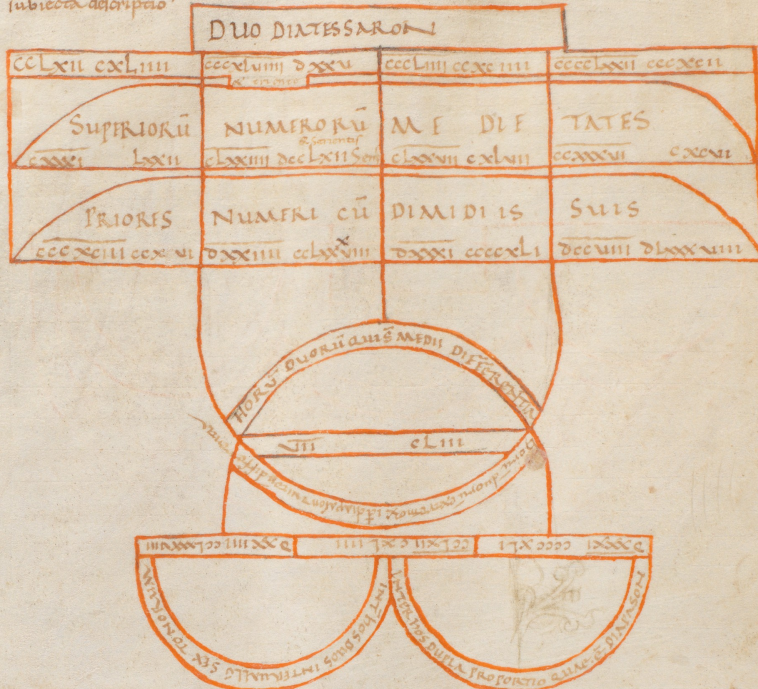 subiecta descriptio
DUO DIATESSARON
ccLxii cxLiiii cccxlviiii dxxv cccLiiii ccxciiii ccccLxxii cccxcii
SUPERIORŪ NUMERORŪ MEDIETATES
cxxxi Lxxii clxxiiii dccLxii clxxvii cxlvii ccxxxvi cxcvi
PRIORES NUMERI CŪ DIMIDIIS SUIS
cccxciii ccxvi dxxiiii ccLxxxviii dxxxi ccccxLi dccviii dLxxxviii
HORŪ DUORŪ MEDII DIFFERENTIA
vii cLiii
dxxiiii ccLxxxviii ccLxii cxLiiii dxxxi ccccxLi
INT HOS DUOS INTERUALLŪ SEX TONORUM
INTER HOS DUPLA PROPORTIO QUAE Ē DIAPASON